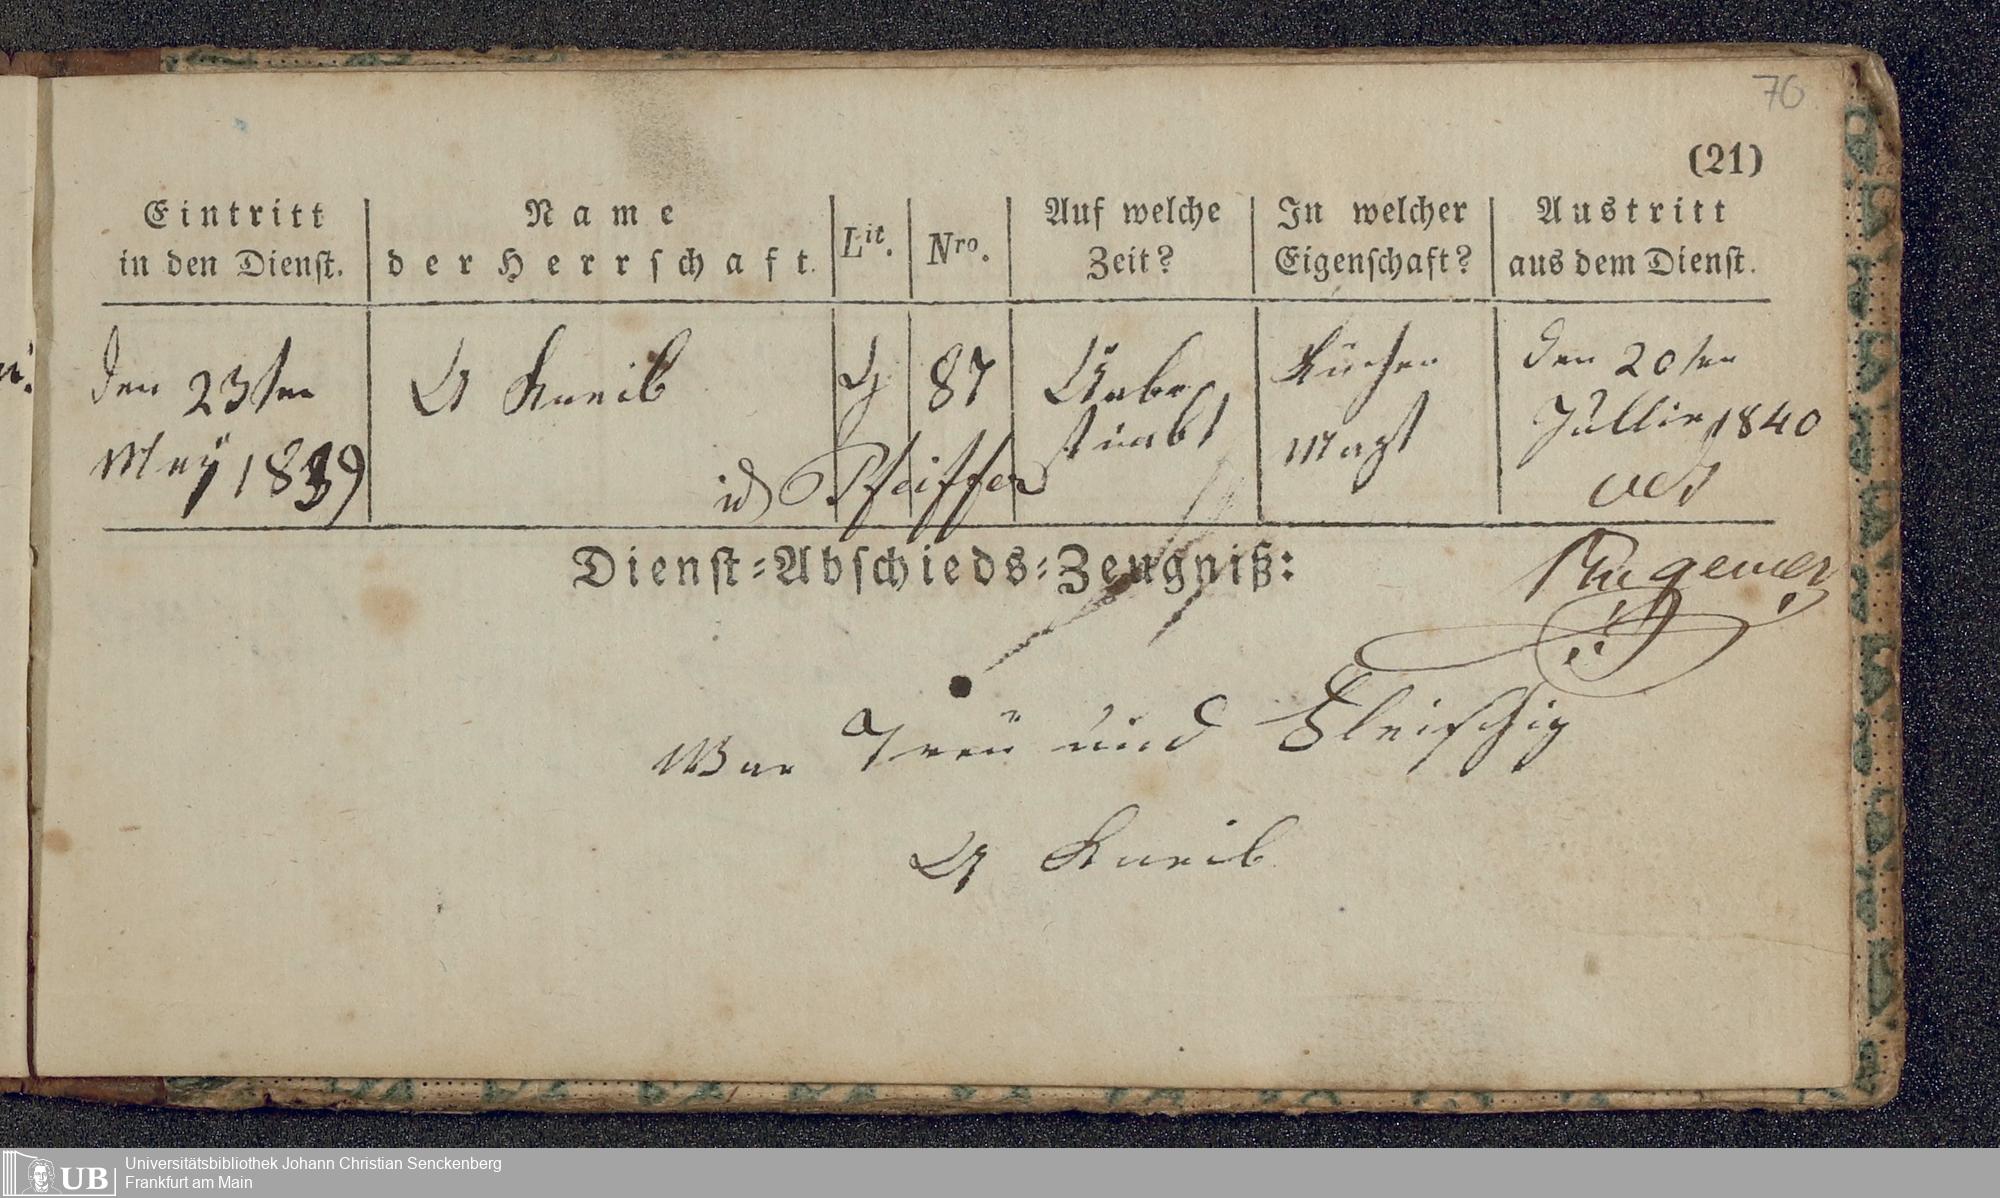 70
(21)
Eintritt in den Dienst.
Name der Herrschaft.
Lit.
Nro.
Auf welche Zeit?
In welcher Eigenschaft?
Austritt aus dem Dienst.
den 23ten
Meÿ 1839
A Kneib
87
Unbe
stimbt
Küchen
Magt
den 20ten
Jullie 1840
Pfeiffer
Dienst-Abschieds-Zeugniß:
War Treü und Fleischig
A Kneib
UB
Universitätsbibliothek Johann Christian Senckenberg
Frankfurt am Main